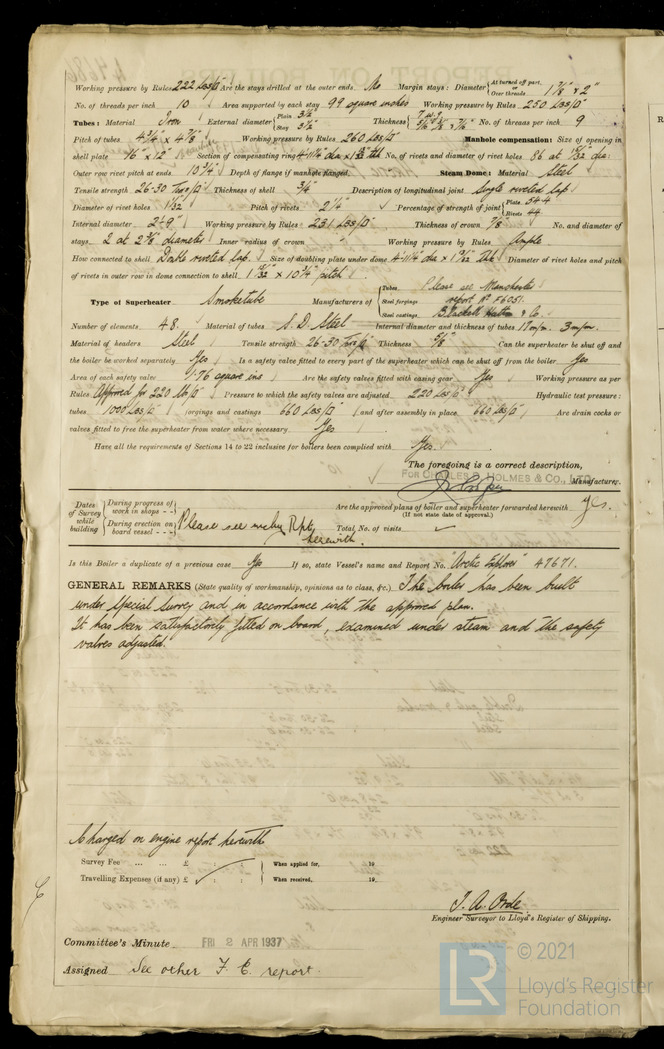 Working pressure by Rules 222 Lbs/□" Are the stays drilled at the outer ends. No Margin stays: Diameter { At turned off part, or Over threads 1 7/8" x 2"
No. of threads per inch 10 Area supported by each stay 99 square inches Working pressure by Rules 250 Lbs/□"
Tubes: Material Iron External diameter { Plain 3 1/2" Stay 3 1/2" Thickness { 5/16" 3/8" x 7/16" No. of threads per inch 9
Pitch of tubes 4 3/4" x 4 7/8" Working pressure by Rules 260 Lbs/□" Manhole compensation: Size of opening in
shell plate 16" x 12" Section of compensating ring No. of rivets and diameter of rivet holes 36 at dia
Outer row rivet pitch at ends 10 3/4" Depth of flange if manhole flanged Steam Dome: Material Steel
Tensile strength 26-30 Tons/□" Thickness of shell 3/4" Description of longitudinal joint Single riveted lap.
Diameter of rivet holes 1 1/32" Pitch of rivets 2 1/4" Percentage of strength of joint { Plate 54.4 Rivets 44
Internal diameter 2'-9" Working pressure by Rules 231 Lbs/□" Thickness of crown 7/8" No. and diameter of
stays 2 at 2 3/8" diameter Inner radius of crown " Working pressure by Rules Ample
How connected to shell Double riveted lap. Size of doubling plate under dome 4'-11 1/4" dia x 1 19/32" Thk Diameter of rivet holes and pitch
of rivets in outer row in dome connection to shell 1 15/32" x 10 3/4" pitch
Type of Superheater Smoketube Manufacturers of { Tubes Please see Manchester
Steel forgings report No F6051.
Steel castings Hatton & Co.
Number of elements 48. Material of tubes S.D. Steel Internal diameter and thickness of tubes 18 m/m. 3 m/m.
Material of headers Steel Tensile strength 26-30 Tons/□" Thickness 5/8" Can the superheater be shut off and
the boiler be worked separately Yes Is a safety valve fitted to every part of the superheater which can be shut off from the boiler Yes
Area of each safety valve 1.76 square ins Are the safety valves fitted with easing gear Yes Working pressure as per
Rules Approved for 220 lb/□" Pressure to which the safety valves are adjusted 220 Lbs/□" Hydraulic test pressure:
tubes 1000 Lbs/□" forgings and castings 660 Lbs/□" and after assembly in place 660 Lbs/□" Are drain cocks or
valves fitted to free the superheater from water where necessary Yes
Have all the requirements of Sections 14 to 22 inclusive for boilers been complied with Yes.
The foregoing is a correct description,
FOR CHARLES D. HOLMES & CO., LTD. Manufacturer.
Dates of Survey while building { During progress of work in shops - - Are the approved plans of boiler and superheater forwarded herewith Yes.
(If not state date of approval.)
During erection on board vessel - - - Please see mchy Rpt. herewith. Total No. of visits ✓
Is this Boiler a duplicate of a previous case Yes If so, state Vessel's name and Report No. "Arctic Explorer" 47671.
GENERAL REMARKS (State quality of workmanship, opinions as to class, &c.) The boiler has been built
under Special Survey and in accordance with the approved plan.
It has been satisfactorily fitted on board, examined under steam and the safety
valves adjusted.
Charged on engine report herewith
Survey Fee ... ... £ : : When applied for, 19
Travelling Expenses (if any) £ : : When received, 19
J. A. Orde
Engineer Surveyor to Lloyd's Register of Shipping.
Committee's Minute FRI 2 APR 1937
Assigned See other F. E. report.
© 2021
LR Lloyd's Register
Foundation